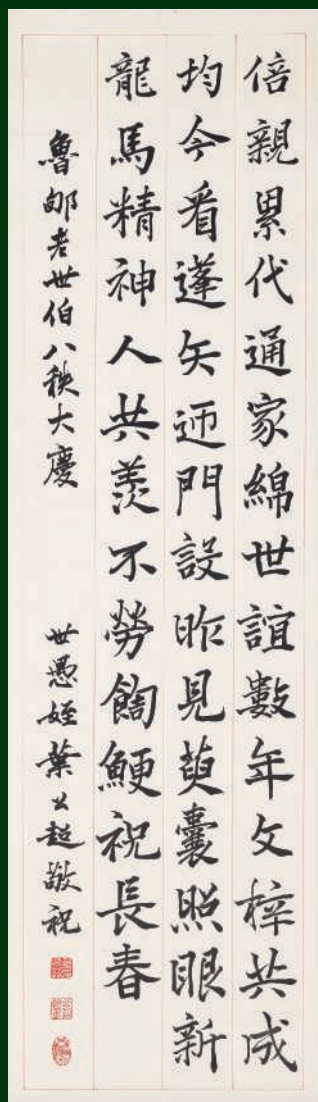 倍親累代通家綿世誼數年文梓共成
均今看蓬矢迎門設昨見萸囊照眼新
龍馬精神人共羨不勞鯁祝長春
魯邨老世伯八秩大慶
世愚姪葉公超敬祝